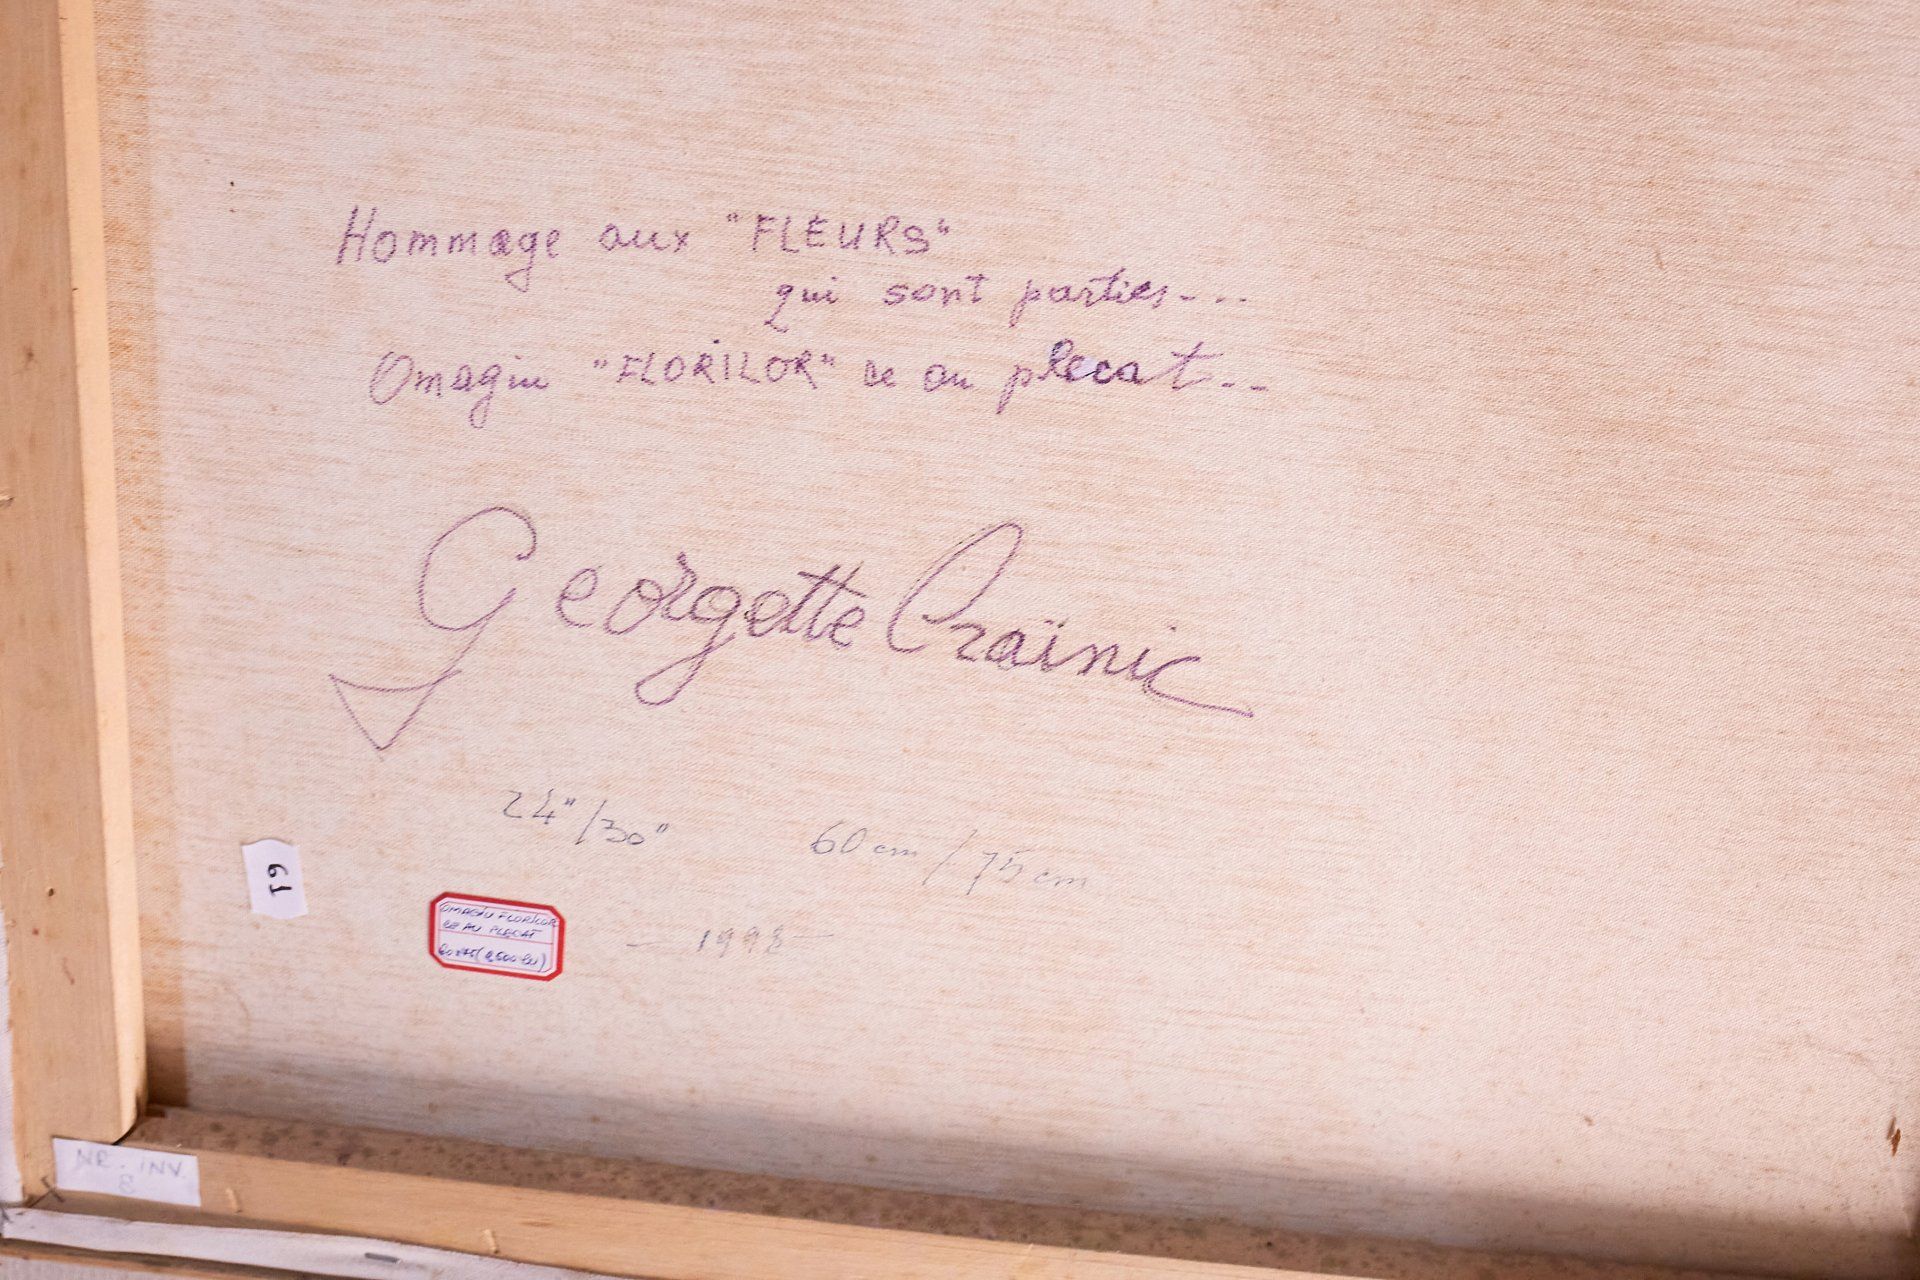 Hommage aux "FLEURS"
qui sont parties...
Omagiu "FLORILOR" ce au plecat...
Georgette Craïnic
24"/30" 60 cm / 75 cm
19
OMAGIU FLORILOR
CE AU PLECAT
60x75
— 1998 —
NR. INV.
8